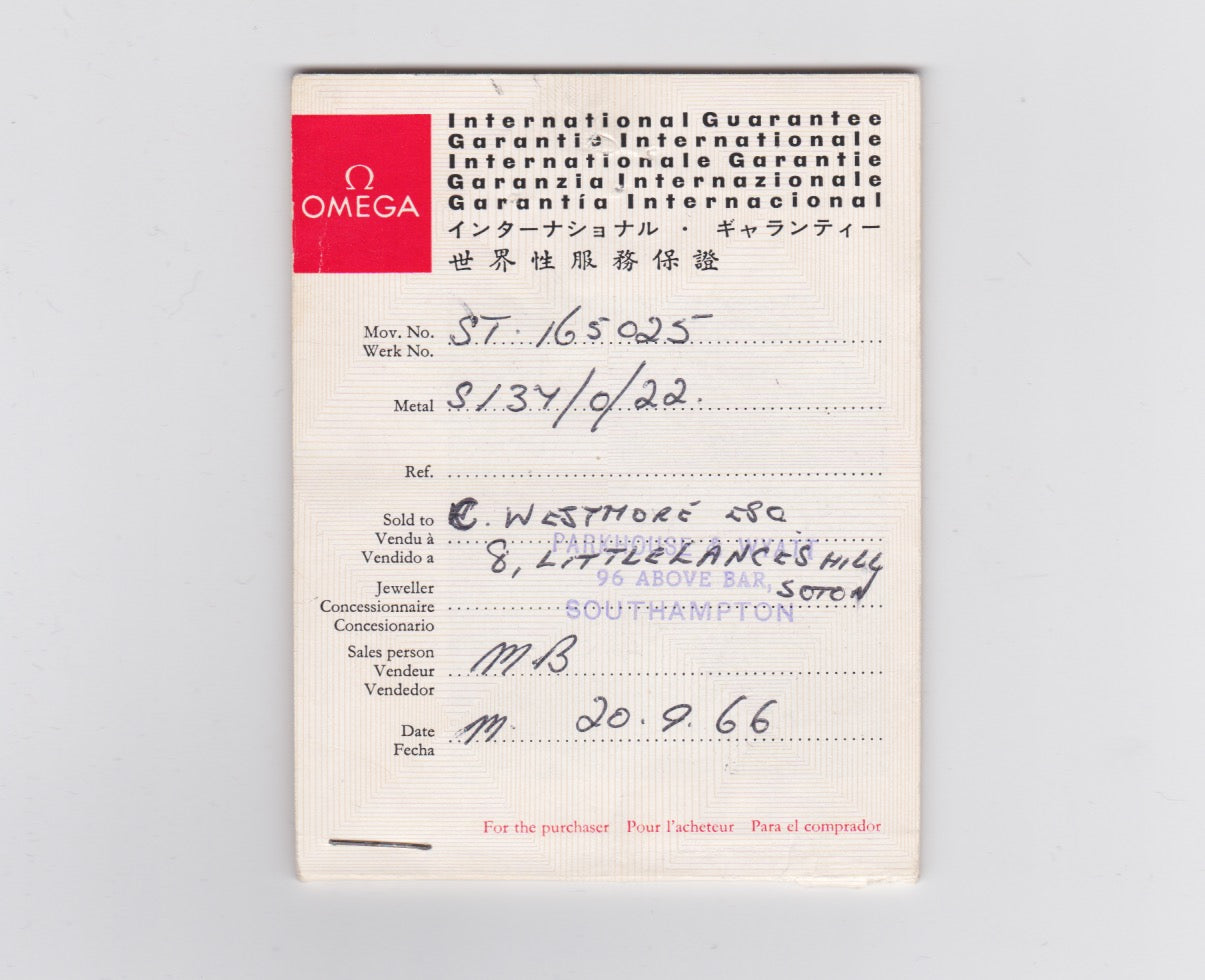 Ω
OMEGA
International Guarantee
Garantie Internationale
Internationale Garantie
Garanzia Internazionale
Garantía Internacional
インターナショナル・ギャランティー
世界性服務保證
Mov. No. ST. 165025
Werk No.
Metal S134/0/22.
Ref.
Sold to C. WESTMORE ESQ
Vendu à
Vendido a 8, LITTLELANCES HILL
SOTON
PARKHOUSE & WYATT
96 ABOVE BAR,
SOUTHAMPTON
Jeweller
Concessionnaire
Concesionario
Sales person
Vendeur MB
Vendedor
Date M. 20.9.66
Fecha
For the purchaser Pour l'acheteur Para el comprador